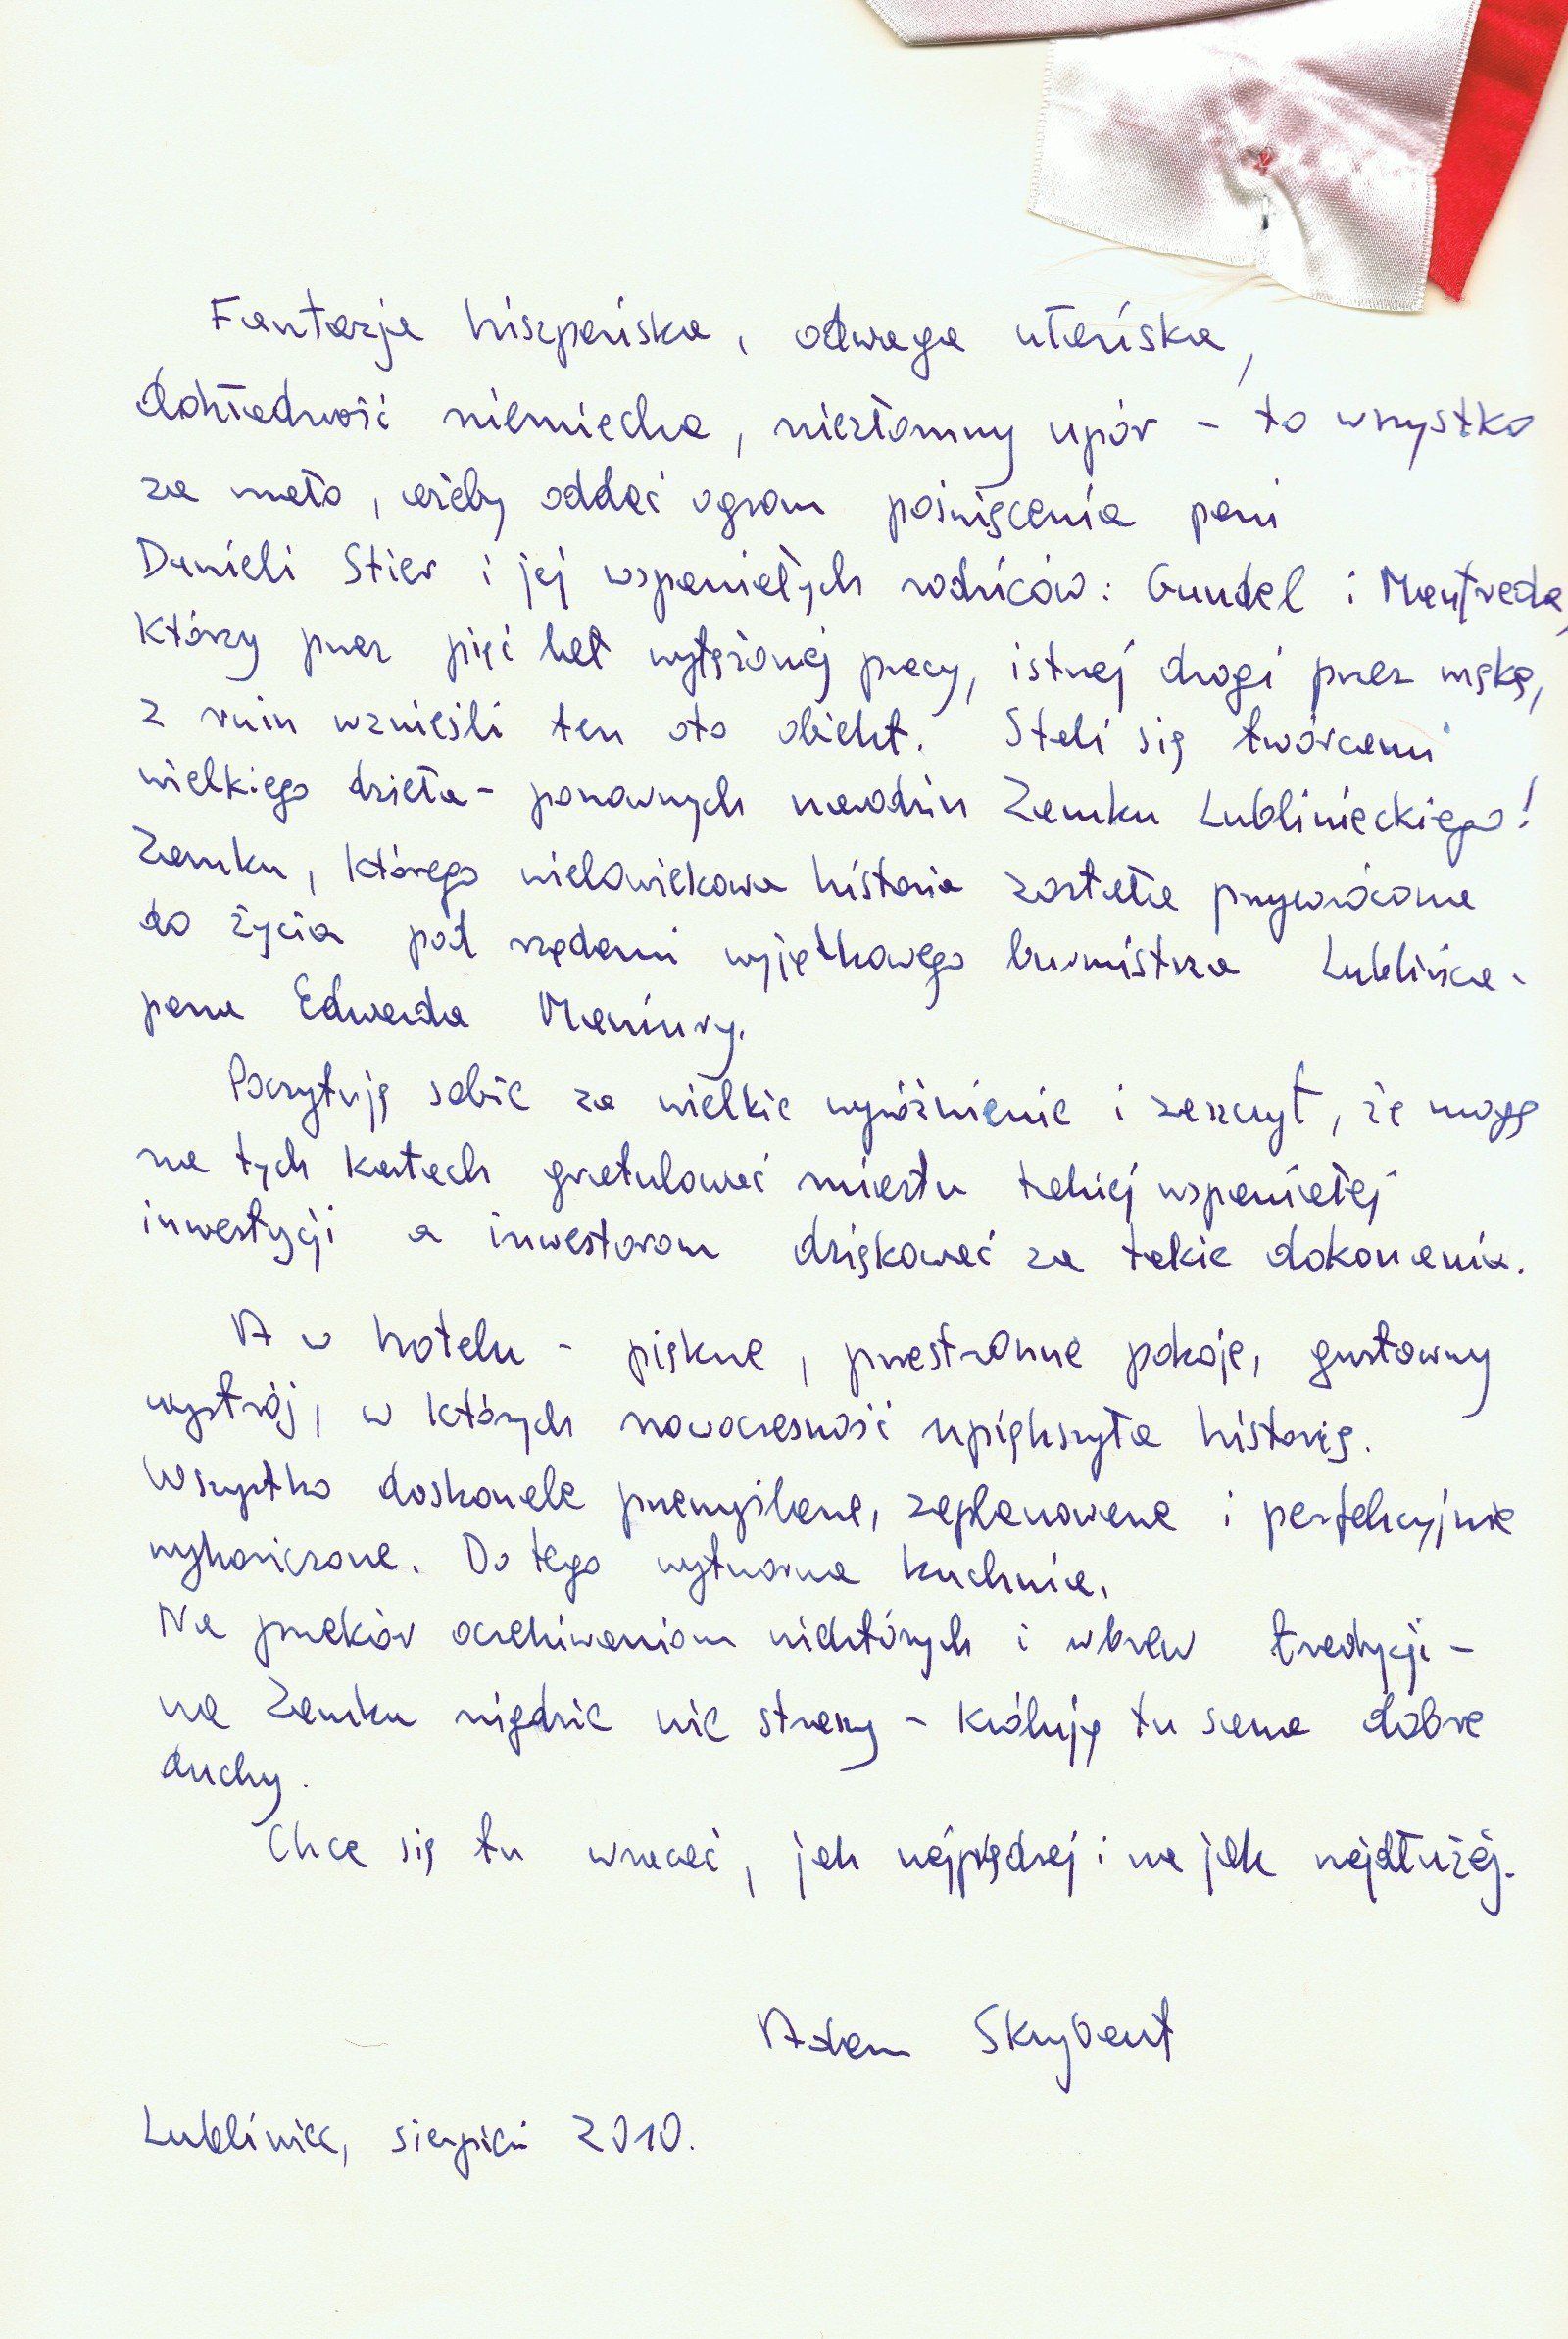 Fantazja hiszpańska, odwaga ułańska,
dokładność niemiecka, niezłomny upór - to wszystko
za mało, ażeby oddać ogrom poświęcenia pani
Danieli Stier i jej wspaniałych rodziców: Gundel i Manfreda,
którzy przez pięć lat wytężonej pracy, istnej drogi przez mękę,
z ruin wznieśli ten oto obiekt. Stali się twórcami
wielkiego dzieła - ponownych narodzin Zamku Lublinieckiego!
Zamku, którego wielowiekowa historia została przywrócona
do życia pod rządami wyjątkowego burmistrza Lublińca -
pana Edwarda Maniury.
Poczytuję sobie za wielkie wyróżnienie i zaszczyt, że mogę
na tych kartach gratulować miastu takiej wspaniałej
inwestycji a inwestorom dziękować za takie dokonania.
A w hotelu - piękne, przestronne pokoje, gustowny
wystrój, w których nowoczesność upiększyła historię.
Wszystko doskonale przemyślane, zaplanowane i perfekcyjnie
wykończone. Do tego wytworna kuchnia.
Na przekór oczekiwaniom niektórych i wbrew tradycji -
na Zamku nigdzie nie straszy - królują tu same dobre
duchy.
Chce się tu wracać, jak najprędzej i na jak najdłużej.
Adam Skrybant
Lubliniec, sierpień 2010.